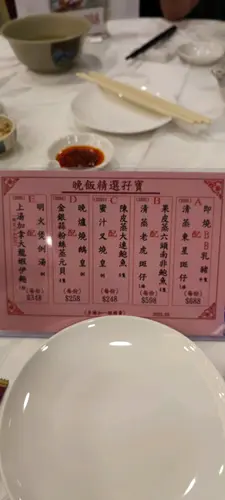 晚飯精選孖寶
A
即燒BB乳豬
配
清蒸東星斑仔
(每份)
$688
果皮蒸六頭南非鮑魚
配
清蒸老虎斑仔
(每份)
$598
C
陳皮蒸大連鮑魚
配
蜜汁叉燒皇
(每份)
$248
晚爐燒鵝皇
配
金銀蒜粉絲蒸元貝
(每份)
$258
E
明火煲例湯
配
上湯加拿大龍蝦伊麵
(每份)
$348